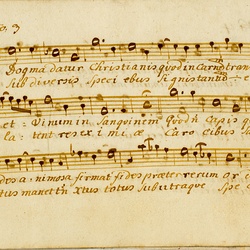 3
Dogma datur Christianis quod in Carnem trans
Sub diversis speciebus Signis tantum
et Vinum in Sanguinem Quod n Capis q
la: tent res ex i mi æ Caro cibus
des a: nimosa firmat fides præter rerum or
tus manet tn Xtus totus sub utraque Spe